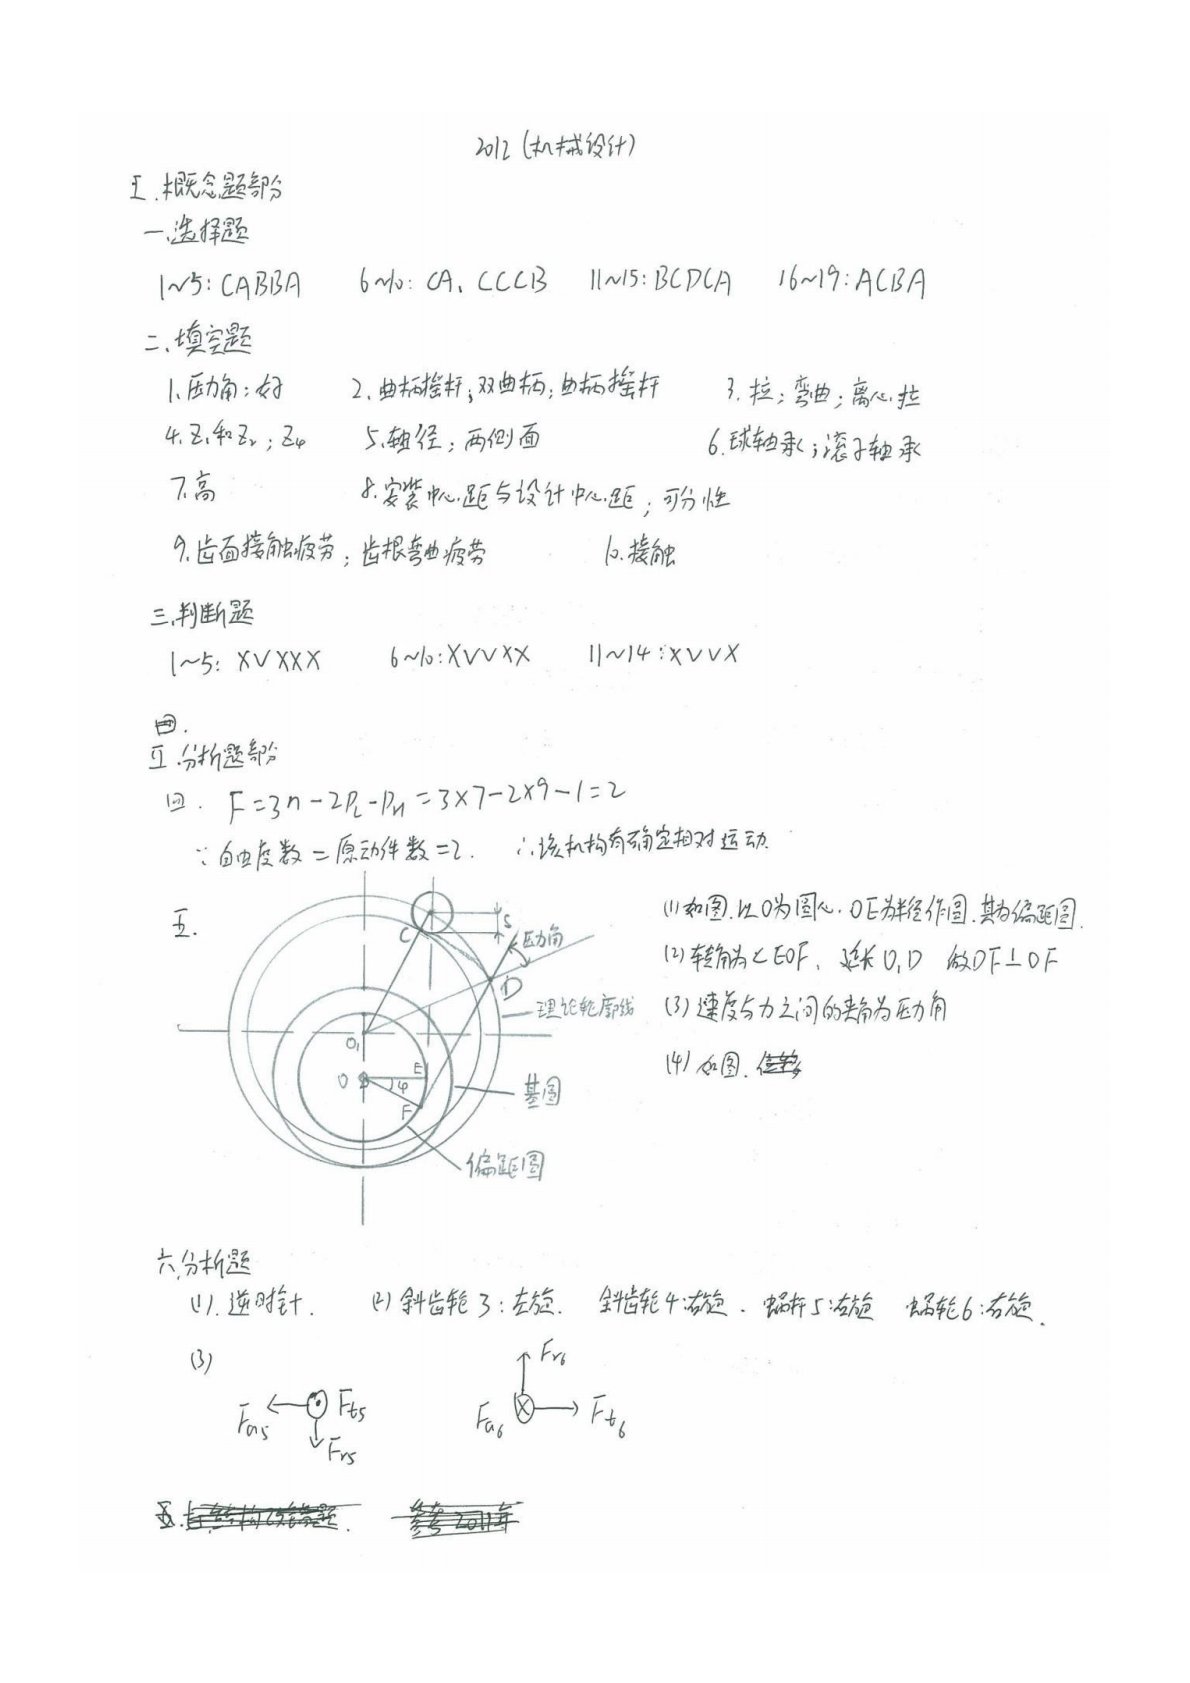 2012 (机械设计)
I.概念题部分
一.选择题
1~5: CABBA 6~10: CA、CCCB 11~15: BCDCA 16~19: ACBA
二、填空题
1.压力角;好 2.曲柄摇杆;双曲柄;曲柄摇杆 3.拉;弯曲;离心拉
4.Z1和Z2;Z4 5.轴径;两侧面 6.球轴承;滚子轴承
7.高 8.安装中心距与设计中心距;可分性
9.齿面接触疲劳;齿根弯曲疲劳 10.接触
三.判断题
1~5: X√XXX 6~10: X√√XX 11~14: X√√X
四.
II.分析题部分
四. F=3n-2PL-PH=3×7-2×9-1=2
∵自由度数=原动件数=2. ∴该机构有确定相对运动.
五.
(1)如图.以O为圆心.OE为半径作圆.其为偏距圆.
(2)转角为∠EOF, 延长O1D 做DF⊥OF
(3)速度与力之间的夹角为压力角
(4)如图.
C
S
压力角
D
理论轮廓线
O1
O
E
φ
F
基圆
偏距圆
六.分析题
(1).逆时针. (2)斜齿轮3:左旋. 斜齿轮4:右旋. 蜗杆5:右旋 蜗轮6:右旋.
(3)
Fa5 Ft5
Fr5
Fr6
Fa6 Ft6
五.
参考2011年